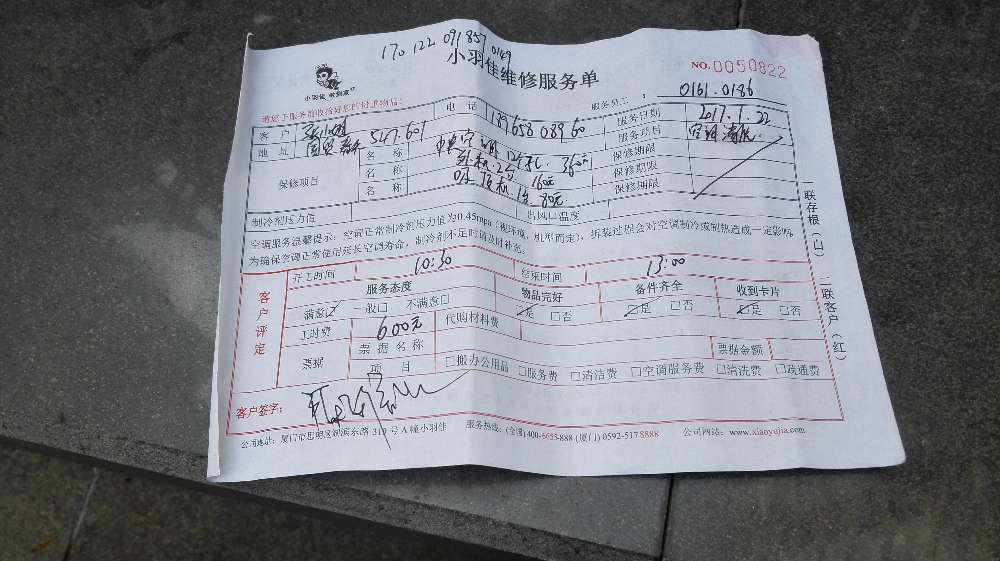 170 122 091857 0149
小羽佳维修服务单
NO. 0050822
小羽佳 做到家
请您于服务前收拾好您的贵重物品:
服务员工: 0161.0186
客户 电话 13965808960 服务日期 2017.1.22
地址 547.601 服务项目 空调清洗
保修项目
名称 12台 360元 保修期限
名称 外机2台 160元 保修期限
名称 吸顶机1台 80元 保修期限
制冷剂压力值 出风口温度
空调服务温馨提示:空调正常制冷剂压力值为0.45mpa(视环境、机型而定),拆装过程会对空调制冷或制热造成一定影响
为确保空调正常使用延长空调寿命,制冷剂不足时请及时补充。
客户评定
开工时间 10:30 结束时间 13:00
服务态度 物品完好 备件齐全 收到卡片
满意☑ 一般□ 不满意□ ☑是 □否 ☑是 □否 ☑是 □否
工时费 600元 代购材料费
票据 票据名称 票据金额
项目 □搬办公用品 □服务费 □清洁费 □空调服务费 □清洗费 □疏通费
客户签字:
公司地址:厦门市思明区湖滨东路319号A幢小羽佳 服务热线:(全国)400-6655-888 (厦门) 0592-5178888 公司网站:www.xiaoyujia.com
一联存根(白) 二联客户(红)